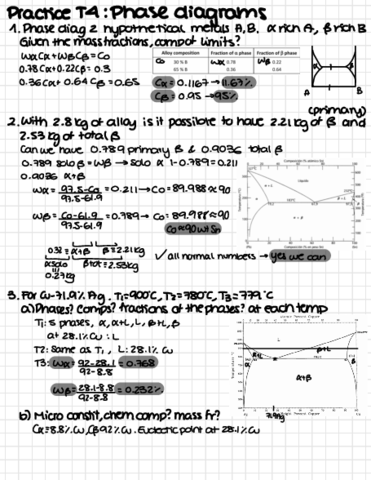 Practice T4: Phase diagrams
1. Phase diag 2 hypothetical metals A, B. α rich A, β rich B
Given the mass fractions, comp of limits?
WαCα + WβCβ = Co
0.78Cα + 0.22Cβ = 0.3
0.36Cα + 0.64Cβ = 0.65
Alloy composition Fraction of α phase Fraction of β phase
Co 30 % B Wα 0.78 Wβ 0.22
65 % B 0.36 0.64
Cα = 0.1167 → 11.67%
Cβ = 0.95 → 95%
A B
(primary)
2. With 2.8kg of alloy is it possible to have 2.21kg of β and
2.53 kg of total β
Can we have 0.789 primary β & 0.9036 total β
0.789 solo β = Wβ → solo α 1-0.789 = 0.211
0.9036 α+β
Wα = 97.5-Co / 97.5-61.9 = 0.211 → Co = 89.988 ≈ 90
Wβ = Co-61.9 / 97.5-61.9 = 0.789 → Co = 89.988 ≈ 90
Co ≈ 90 wt Sn
0.32 = α+β β = 2.21kg
α solo β tot = 2.53kg
0.27kg
✓ all normal numbers → yes we can
α + β
3. For Cu-71.9% Ag. T1=900°C, T2=780°C, T3=779°C
a) Phases? Comps? fractions of the phases? at each temp
T1: 5 phases, α, α+L, L, β+L, β
at 28.1% Cu : L
T2: Same as T1, L: 28.1% Cu
T3: Wα = 92-28.1 / 92-8.8 = 0.768
Wβ = 28.1-8.8 / 92-8.8 = 0.232%
α+L β+L
α
α+β
71.9Ag
b) Micro constit, chem comp? mass fr?
Cα = 8.8% Cu, Cβ 92% Cu. Euctectic point at 28.1% Cu